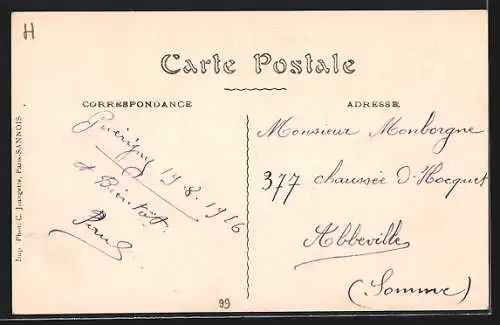 H
Carte Postale
CORRESPONDANCE
ADRESSE
Guérigny 19.8.1916
à Bientôt.
Paul
Monsieur Monborgne
377 chaussée d'Hocquet
Abbeville
(Somme)
Imp. Phot. C. Paris-SANNOIS
99